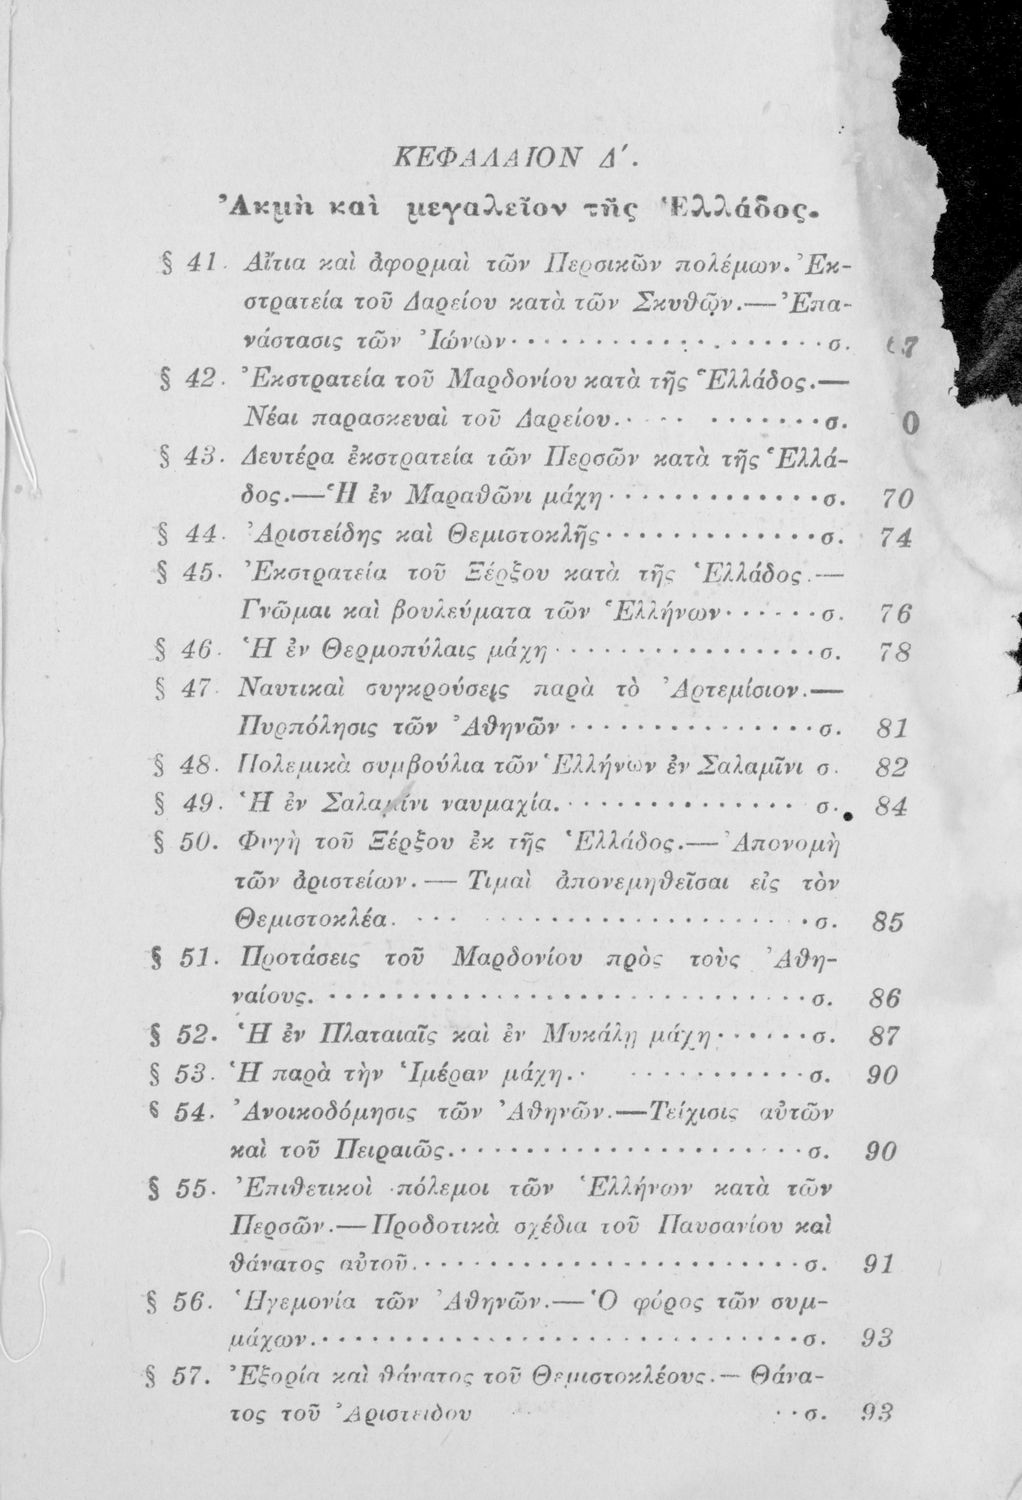 ΚΕΦΑΛΑΙΟΝ Δ΄.
Ἀκμὴ καὶ μεγαλεῖον τῆς Ἑλλάδος.
§ 41. Αἴτια καὶ ἀφορμαὶ τῶν Περσικῶν πολέμων. Ἐκ-
στρατεία τοῦ Δαρείου κατὰ τῶν Σκυθῶν.—Ἐπα-
νάστασις τῶν Ἰώνων . . . . . . . . . . . . . . . . σ. 67
§ 42. Ἐκστρατεία τοῦ Μαρδονίου κατὰ τῆς Ἑλλάδος.—
Νέαι παρασκευαὶ τοῦ Δαρείου. . . . . . . . . . . σ. 0
§ 43. Δευτέρα ἐκστρατεία τῶν Περσῶν κατὰ τῆς Ἑλλά-
δος.—Ἡ ἐν Μαραθῶνι μάχη . . . . . . . . . . . . σ. 70
§ 44. Ἀριστείδης καὶ Θεμιστοκλῆς . . . . . . . . . . . . σ. 74
§ 45. Ἐκστρατεία τοῦ Ξέρξου κατὰ τῆς Ἑλλάδος.—
Γνῶμαι καὶ βουλεύματα τῶν Ἑλλήνων . . . . . . σ. 76
§ 46. Ἡ ἐν Θερμοπύλαις μάχη . . . . . . . . . . . . . . σ. 78
§ 47. Ναυτικαὶ συγκρούσεις παρὰ τὸ Ἀρτεμίσιον.—
Πυρπόλησις τῶν Ἀθηνῶν . . . . . . . . . . . . . σ. 81
§ 48. Πολεμικὰ συμβούλια τῶν Ἑλλήνων ἐν Σαλαμῖνι σ. 82
§ 49. Ἡ ἐν Σαλαμίνι ναυμαχία. . . . . . . . . . . . . . σ. 84
§ 50. Φυγὴ τοῦ Ξέρξου ἐκ τῆς Ἑλλάδος.—Ἀπονομὴ
τῶν ἀριστείων.—Τιμαὶ ἀπονεμηθεῖσαι εἰς τὸν
Θεμιστοκλέα. . . . . . . . . . . . . . . . . . . . . σ. 85
§ 51. Προτάσεις τοῦ Μαρδονίου πρὸς τοὺς Ἀθη-
ναίους. . . . . . . . . . . . . . . . . . . . . . . . σ. 86
§ 52. Ἡ ἐν Πλαταιαῖς καὶ ἐν Μυκάλῃ μάχη . . . . . . σ. 87
§ 53. Ἡ παρὰ τὴν Ἱμέραν μάχη. . . . . . . . . . . . . σ. 90
§ 54. Ἀνοικοδόμησις τῶν Ἀθηνῶν.—Τείχισις αὐτῶν
καὶ τοῦ Πειραιῶς. . . . . . . . . . . . . . . . . . σ. 90
§ 55. Ἐπιθετικοὶ πόλεμοι τῶν Ἑλλήνων κατὰ τῶν
Περσῶν.—Προδοτικὰ σχέδια τοῦ Παυσανίου καὶ
θάνατος αὐτοῦ. . . . . . . . . . . . . . . . . . . . σ. 91
§ 56. Ἡγεμονία τῶν Ἀθηνῶν.—Ὁ φόρος τῶν συμ-
μάχων. . . . . . . . . . . . . . . . . . . . . . . . σ. 93
§ 57. Ἐξορία καὶ θάνατος τοῦ Θεμιστοκλέους.—Θάνα-
τος τοῦ Ἀριστείδου . . σ. 93